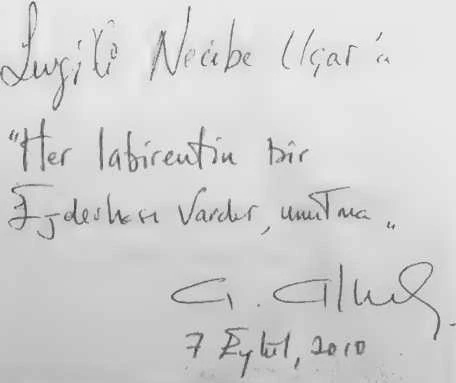 Sevgili Necibe Uçar'a
"Her labirentin bir
Ejderhası Vardır, unutma„
7 Eylül, 2010